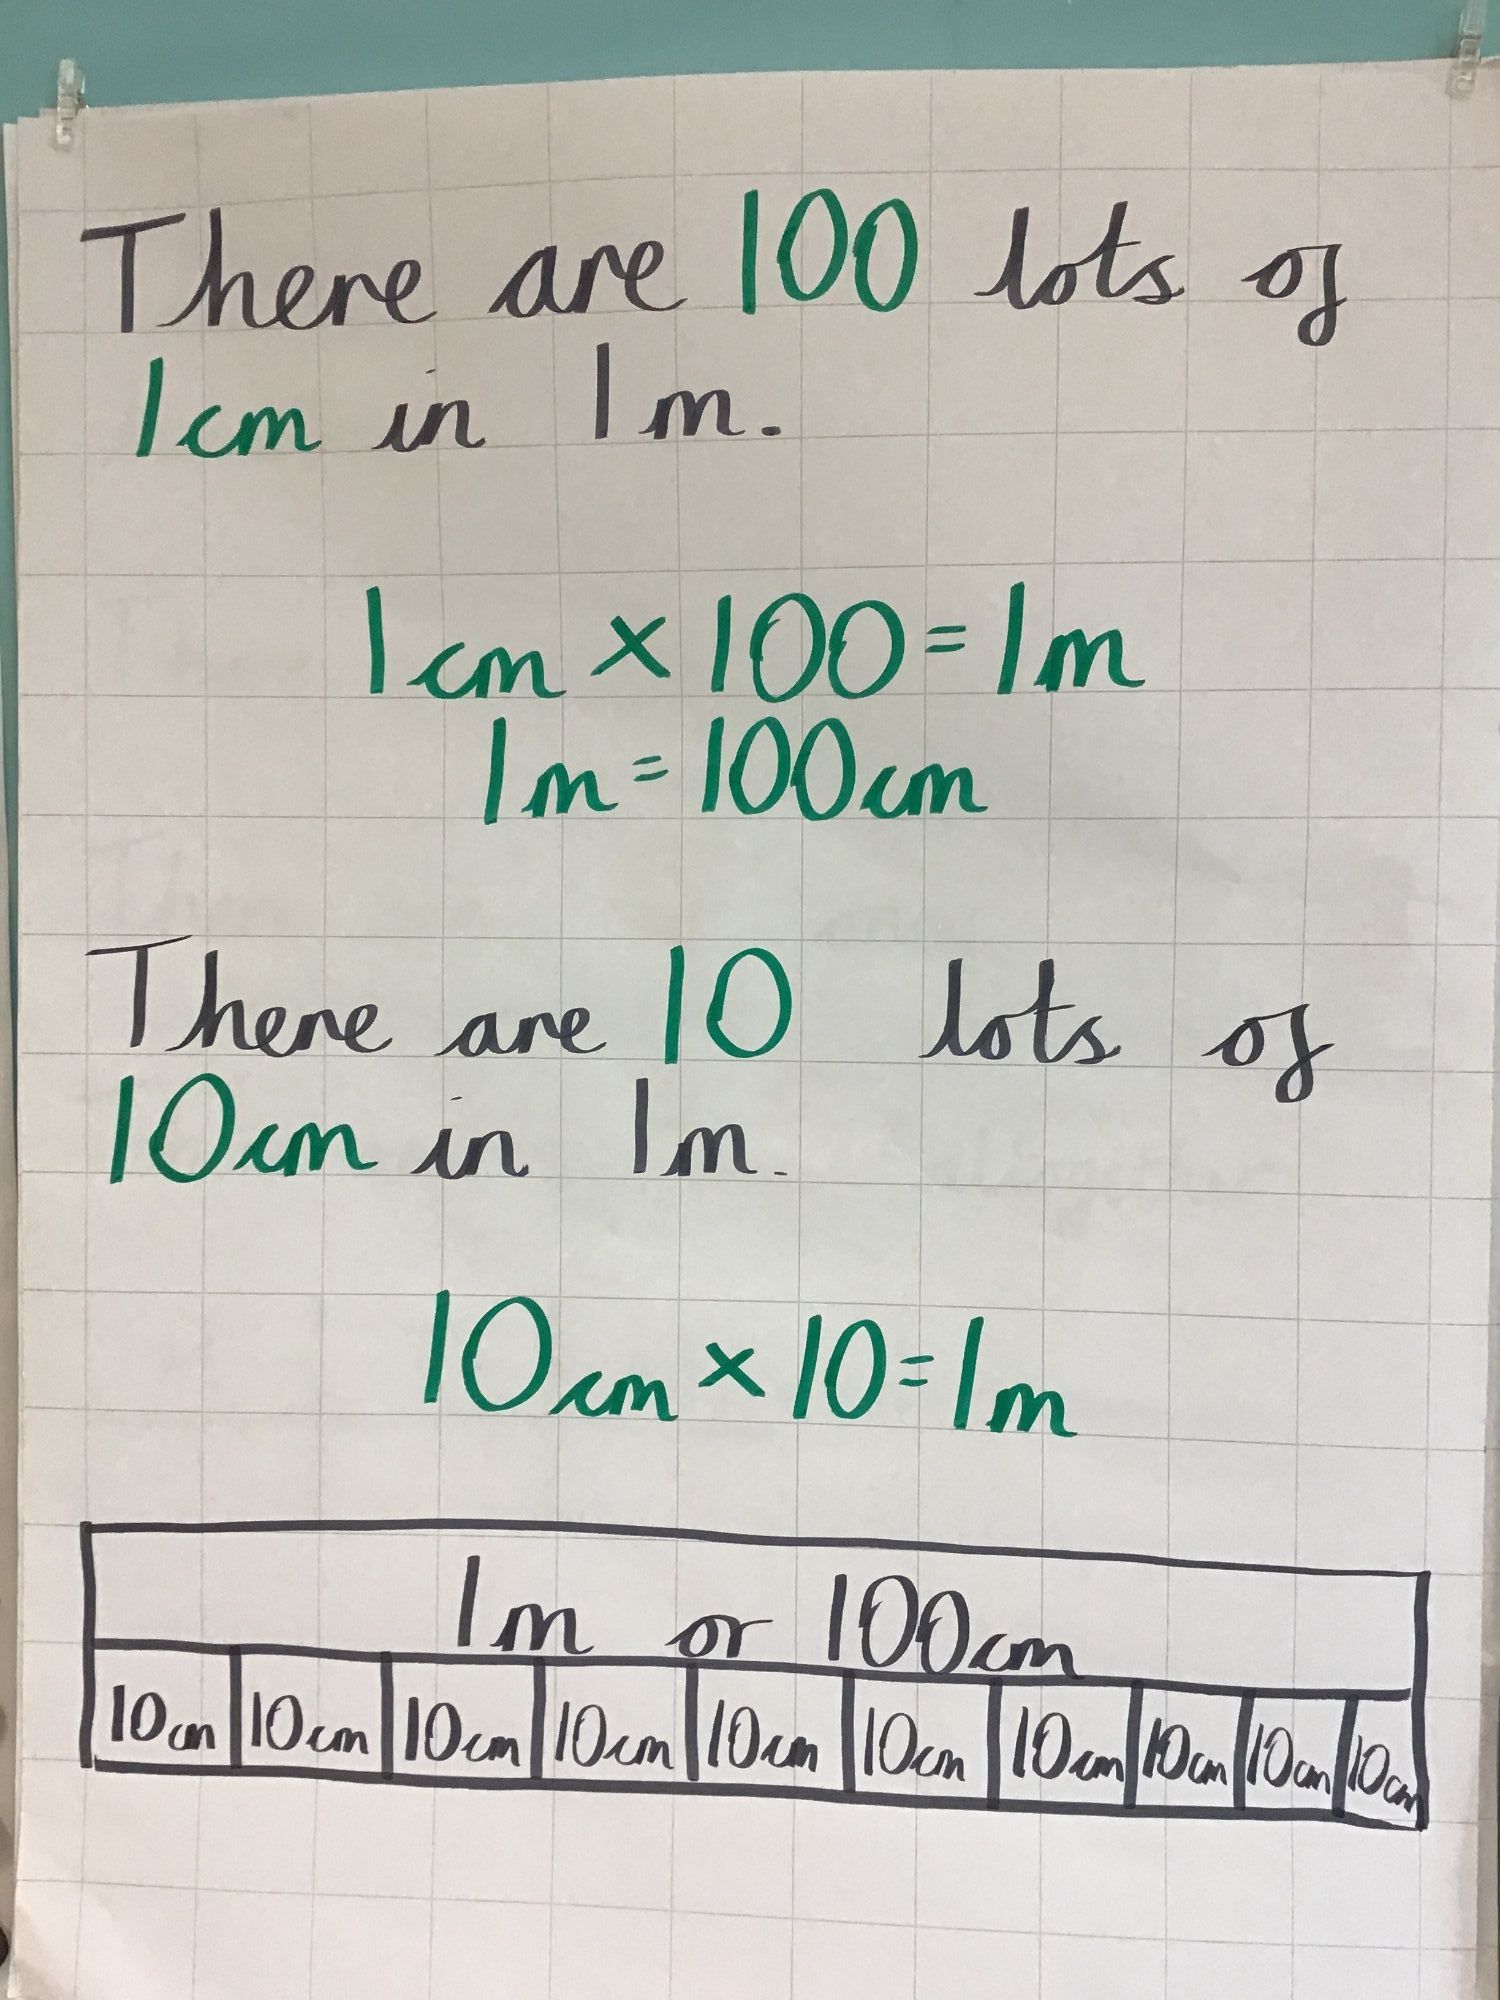 There are 100 lots of
1cm in 1m.
1cm × 100 = 1m
1m = 100cm
There are 10 lots of
10cm in 1m.
10cm × 10 = 1m
1m or 100cm
10cm 10cm 10cm 10cm 10cm 10cm 10cm 10cm 10cm 10cm